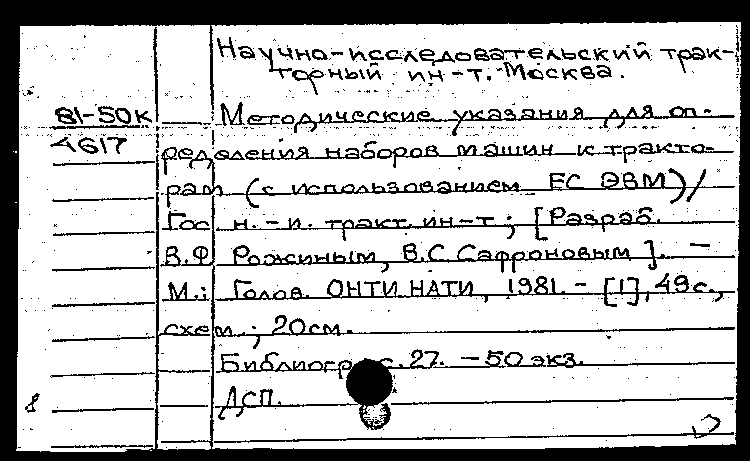 Научно-исследовательский трак-
торный ин-т. Москва.
81-50к Методические указания для оп-
4617 ределения наборов машин к тракто-
рам (с использованием ЕС ЭВМ)/
Гос н.-и. тракт. ин-т; [Разраб.
В.Ф Рожиным, В.С Сафроновым]. —
М.: Голов. ОНТИ НАТИ, 1981. - [1], 49с.,
схем.; 20см.
Библиогр с. 27. - 50 экз.
8 Дсп.